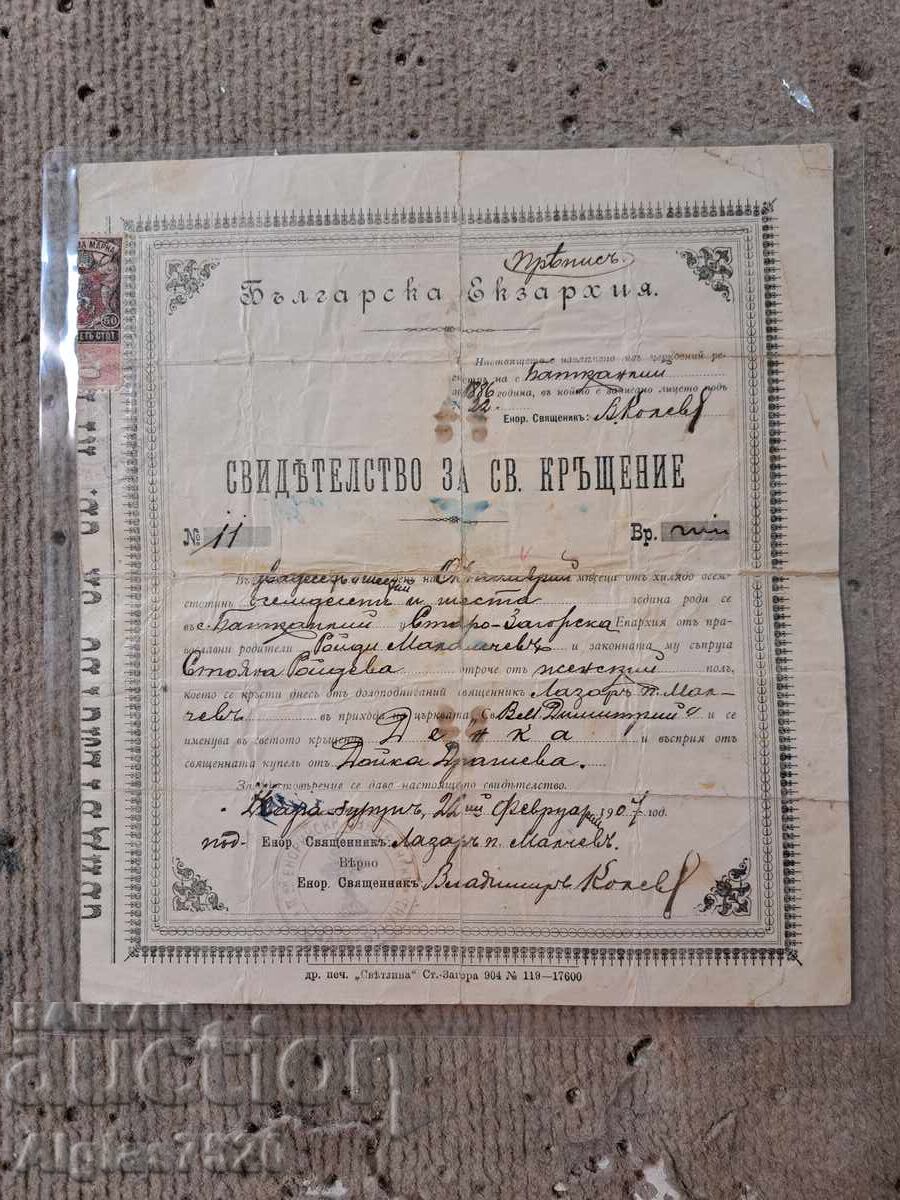 Прѣписъ.
Българска Екзархия.
НА МАРКА
50
Настоящето е извлѣчено изъ църковний ре-
на с. Батканлий
1886 година, въ който е записано лицето подъ
22.
Енор. Священикъ: В. Колевъ
СВИДѢТЕЛСТВО ЗА СВ. КРѢЩЕНИЕ
№ 11
Вр.
Въ двадесеть и день на Октомврий мѣсеца отъ хилядо осем-
стотинъ осемдесеть и шеста година роди се
въ с. Батканлий у Старо-Загорска Епархия отъ пра-
вославни родители Ройди Малчевъ и законната му съпруга
Стояна Ройдева отроче отъ женский полъ,
което се кръсти днесъ отъ долоподписаний священикъ Лазаръ п. Мал-
чевъ въ прихода на църквата „Св. Вел. Димитрий“ и се
именува въ светото кръщение Денка и въсприя отъ
священната купель отъ Дойка Драгиева.
За удостовѣрение се дава настоящето свидѣтелство.
22 ий Февруарий 1907 год.
под. Енор. Священикъ: Лазаръ п. Малчевъ.
Вѣрно
Енор. Священикъ: Владимиръ Колевъ
др. печ. „Свѣтлина“ Ст.-Загора 904 № 119—17600
БАЛКАН
auction
Alglas7520